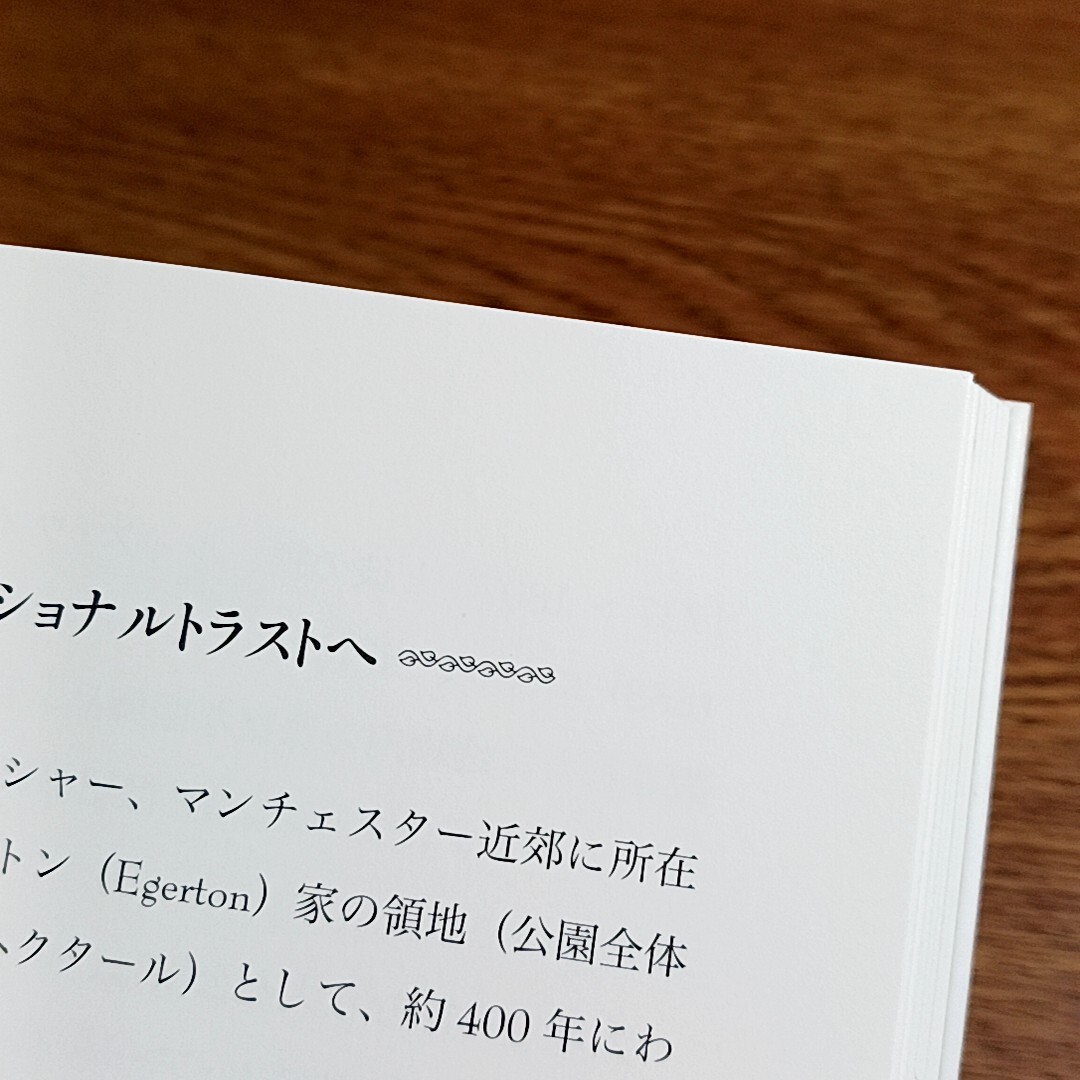 ショナルトラストへ
シャー、マンチェスター近郊に所在
トン（Egerton）家の領地（公園全体
ヘクタール）として、約 400 年にわ